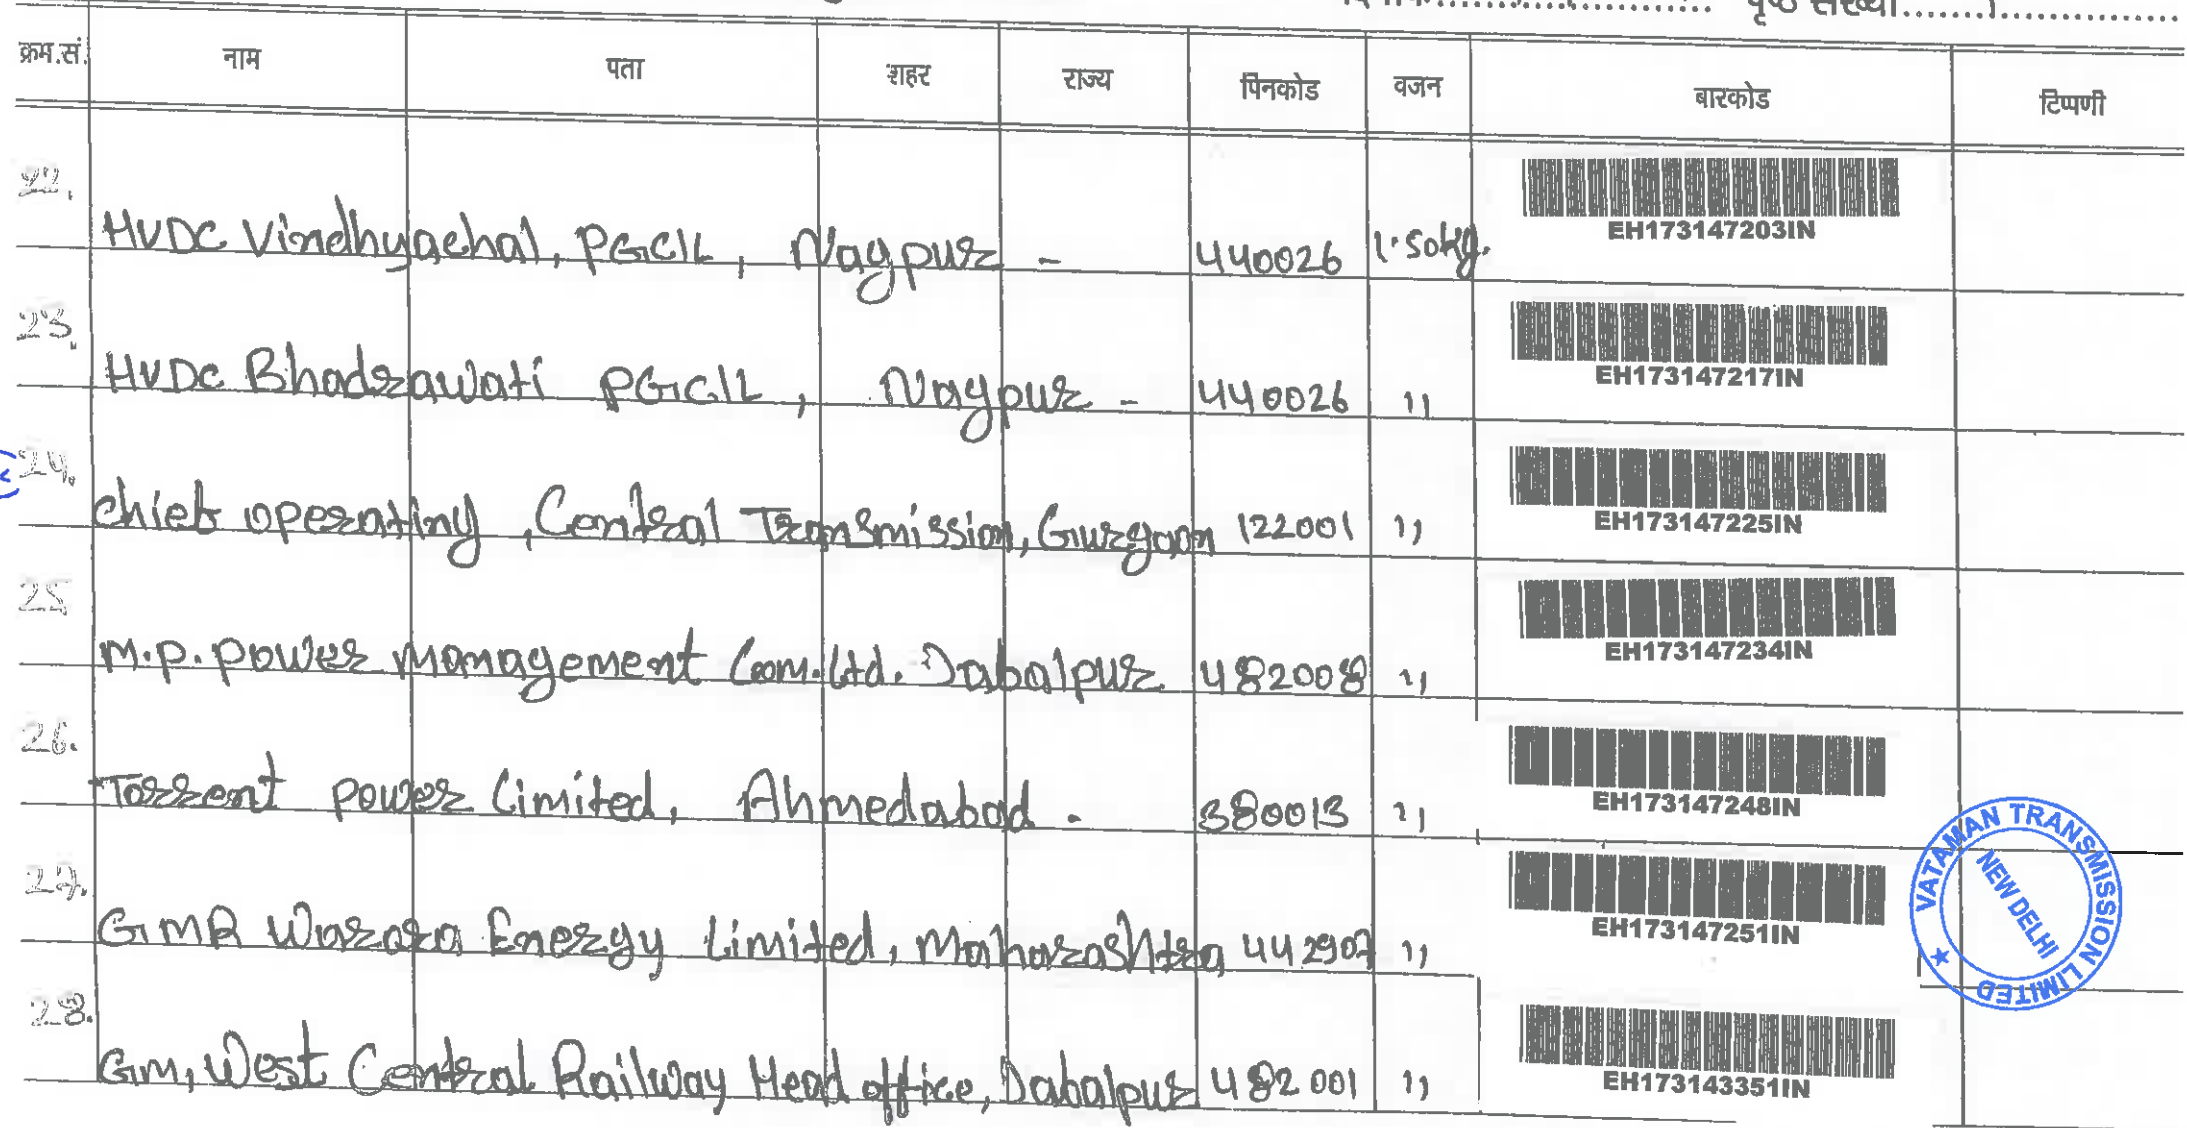 पृष्ठ संख्या
क्रम.सं. नाम पता शहर राज्य पिनकोड वजन बारकोड टिप्पणी
22. HVDC Vindhyachal, PGCIL, Nagpur - 440026 1.50kg. EH173147203IN
23. HVDC Bhadrawati PGCIL, Nagpur - 440026 " EH173147217IN
24. Chief operating, Central Transmission, Gurgaon 122001 " EH173147225IN
25 M.P. Power Management Com. Ltd. Jabalpur 482008 " EH173147234IN
26. Torrent Power Limited, Ahmedabad - 380013 " EH173147248IN
27. GMR Warora Energy Limited, Maharashtra 442907 " EH173147251IN
28. GM, West Central Railway Head office, Jabalpur 482001 " EH173143351IN
VATAMAN TRANSMISSION LIMITED
NEW DELHI